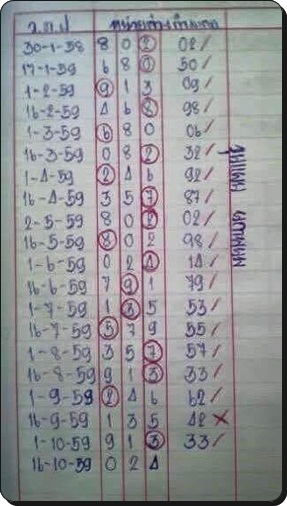 ว.ด.ป
30-1-58 8 0 2 02/
17-1-59 6 8 0 50/
1-2-59 9 1 3 09/
16-2-59 4 6 8 98/
1-3-59 6 8 0 06/
16-3-59 0 8 2 32/
1-4-59 2 4 6 92/
16-4-59 3 5 7 87/
2-5-59 8 0 2 02/
16-5-59 8 0 2 98/
1-6-59 0 2 4 14/
16-6-59 7 9 1 79/
1-7-59 1 3 5 53/
16-7-59 5 7 9 55/
1-8-59 3 5 7 57/
16-8-59 9 1 3 33/
1-9-59 2 4 6 62/
16-9-59 1 3 5 42 ×
1-10-59 9 1 3 33/
16-10-59 0 2 4